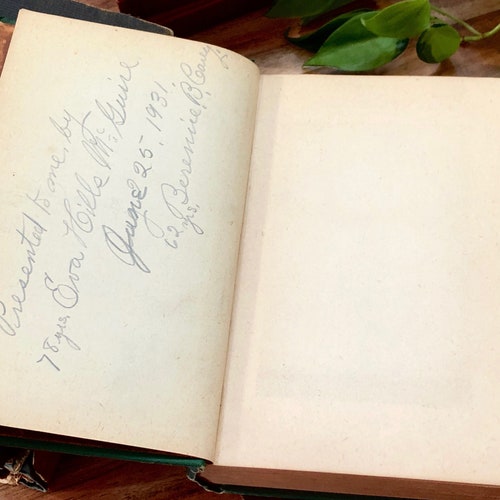 Presented to me by
78 yrs. Eva Hills McGuire
June 25, 1931
62 yrs. Berenice B.